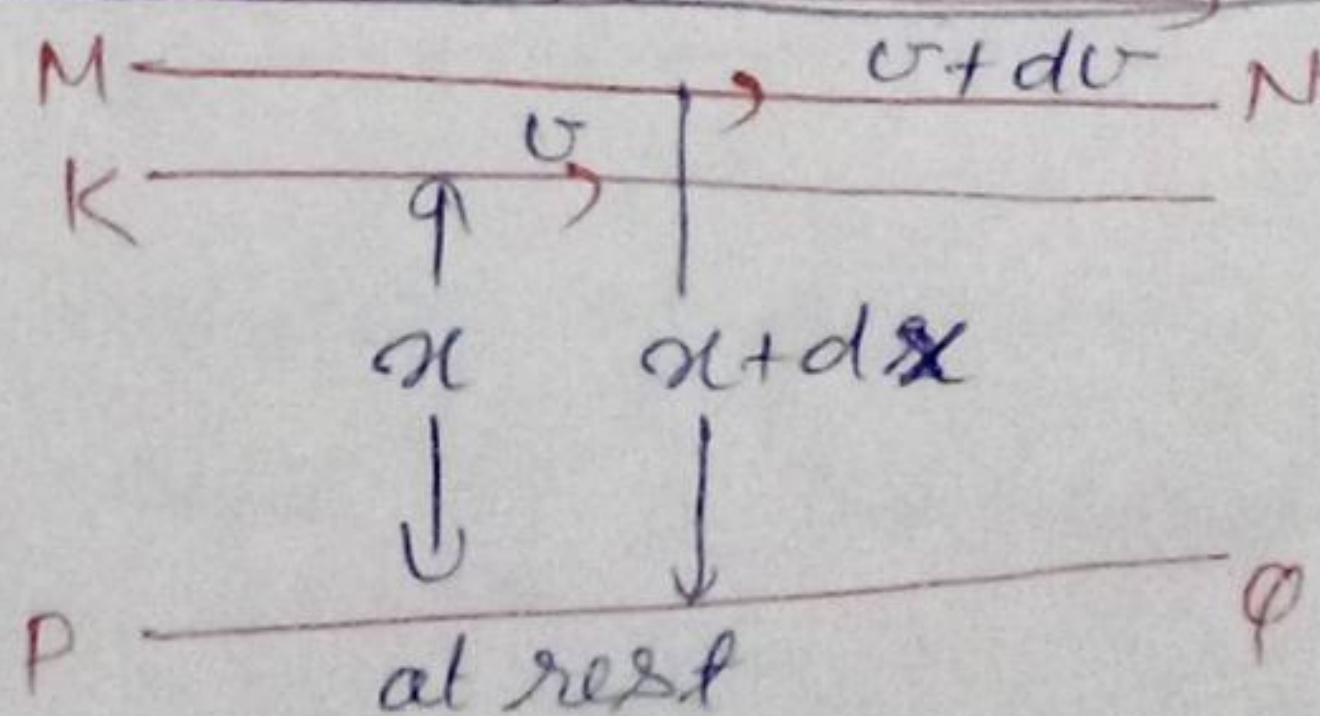 M v+dv N
K v
x x+dx
P at rest Q